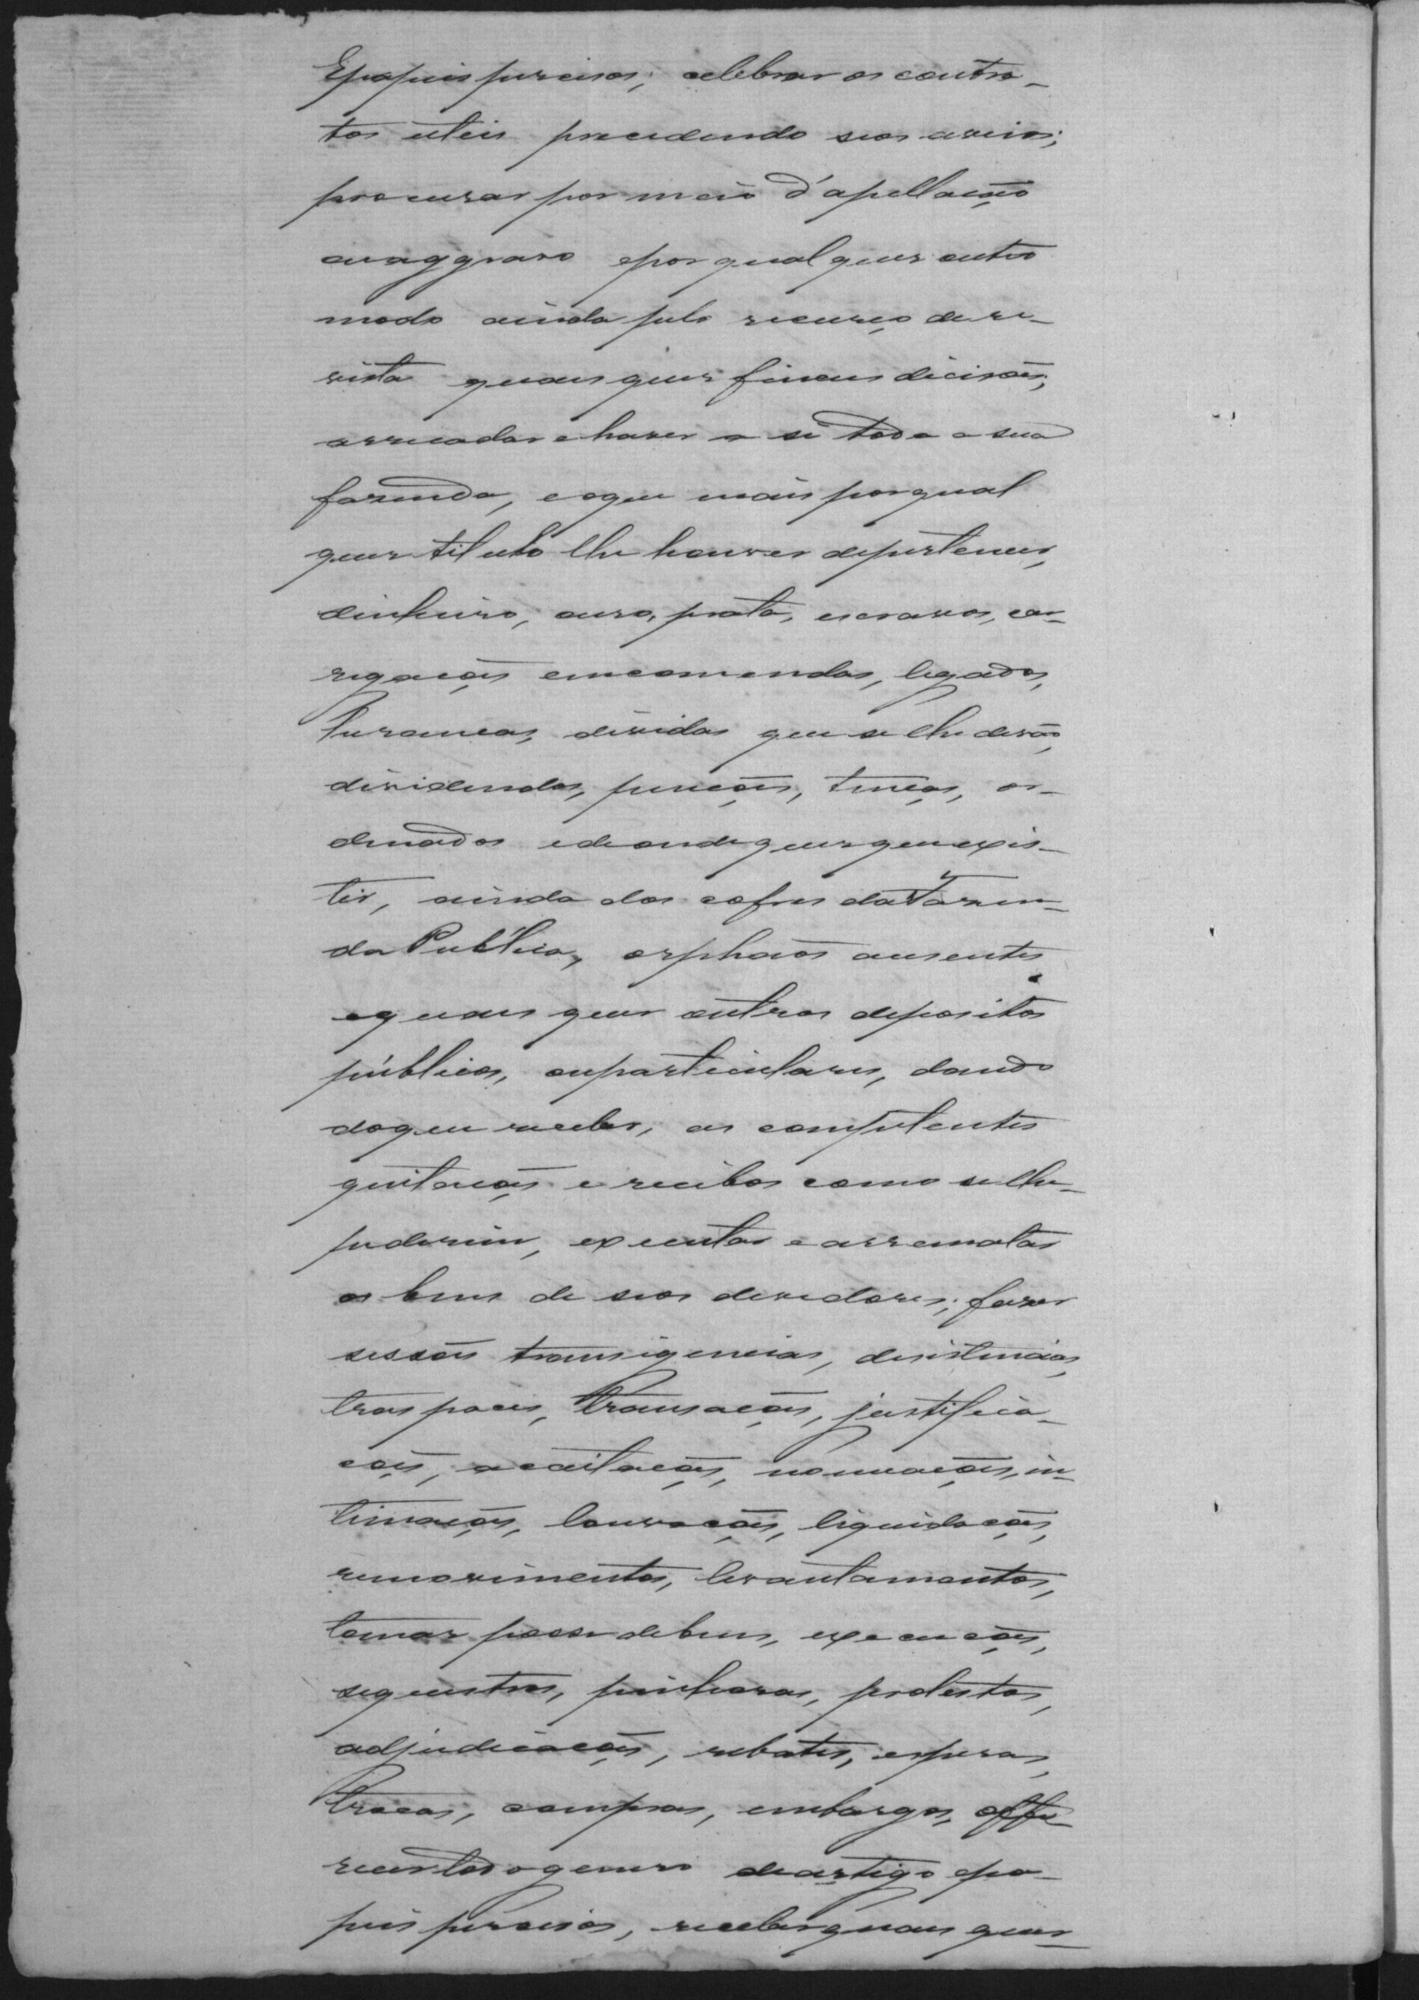 Epapeis percisos; celebrar os contra-
tos uteis precedendo seos avisos;
procurar por meio d'apellação
ouaggravo epor qualquer outro
modo ainda pelo recurço de re-
vista quaes quer finaes dicisões;
arrecadar e haver a si toda a sua
fazenda, eoque mais por qual
quer titulo lhe houver depertencer,
dinheiro, ouro, prata, escravos, car-
regações emcomendas, legados,
heranças, dividas que se lhe devão,
dividendos, penções, tenças, or-
denados edeonde quer que exis-
tir, ainda dos cofres da Fazen-
da Publica, orphãos ausentes
equaes quer outros depositos
públicos, ouparticulares, dando
doque receber, as competentes
quitações e recibos como se lhe
pederem, executar e arrematar
os bens de seos devedores; fazer
sessões transigencias, desistencias,
traspaces, transações, justifica-
ções, aceitações, nomeações, in-
timações, louvações, liquidações,
removimentos, levantamentos,
tomar posse debens, execuções,
sequestros, penhoras, protestos,
adjudicações, rebates, esperas,
trocas, compras, embargos, offe-
recer todo genero deartigo epa-
peis percisos, receber quaes quer